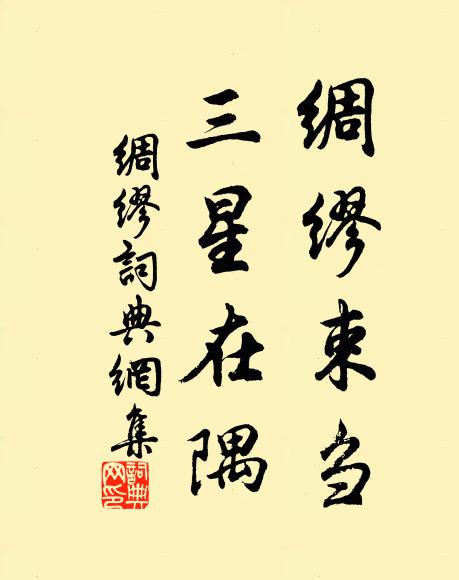 綢繆束刍
三星在隅
綢繆詞典網集
詞典
网印